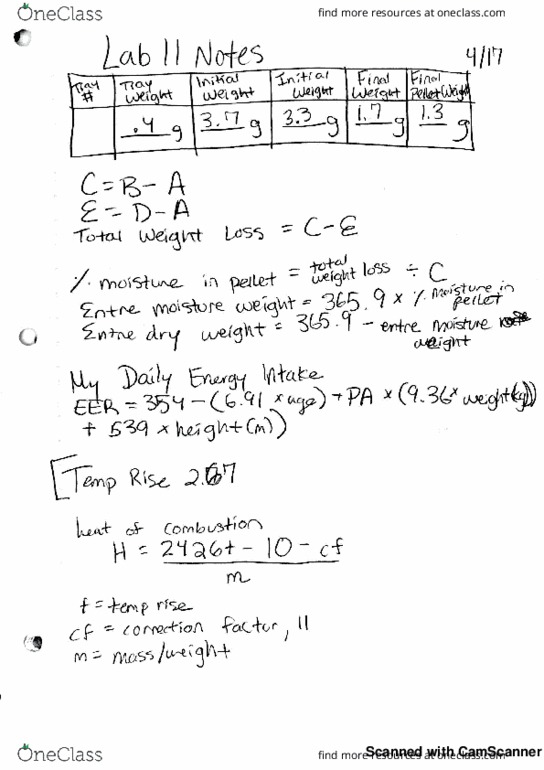 OneClass find more resources at oneclass.com
Lab 11 Notes 4/17
Tray # Tray Weight Initial Weight Initial Weight Final Weight Final Pellet Weight
.4 g 3.7 g 3.3 g 1.7 g 1.3 g
C = B - A
E = D - A
Total Weight Loss = C - E
% moisture in pellet = total weight loss ÷ C
Entre moisture weight = 365.9 x % moisture in pellet
Entre dry weight = 365.9 - entre moisture weight
My Daily Energy Intake
EER = 354 - (6.91 x age) + PA x (9.36 x weight (kg))
+ 539 x height (m))
[Temp Rise 2.67
heat of combustion
H = 2426t - 10 - cf
m
t = temp rise
cf = correction factor, 11
m = mass/weight
OneClass find more resources at oneclass.com
Scanned with CamScanner